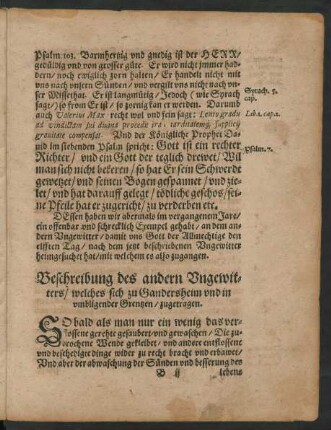 Psalm 103. Barmhertzig vnd gnedig ist der HERR/
gedüldig vnd von grosser güte. Er wird nicht jmmer had-
dern/ noch ewiglich zorn halten/ Er handelt nicht mit
vns nach vnsern Sünden/ vnd vergilt vns nicht nach vn-
ser Missethat. Er ist langmütig/ Jedoch (wie Syrach
sagt/) so from Er ist/ so zornig kan er werden. Darumb
auch Valerius Max: recht wol vnd fein sagt: Lento gradu
ad vindictam sui diuina procedit ira, tarditatemq́; supplicij
grauitate compensat. Vnd der Königliche Prophet Da-
uid im siebenden Psalm spricht: Gott ist ein rechter
Richter/ vnd ein Gott der teglich drewet/ Wil
man sich nicht bekeren/ so hat Er sein Schwerdt
gewetzet/ vnd seinen Bogen gespannet/ vnd zie-
let/ vnd hat darauff gelegt/ tödtliche geschos/ sei-
ne Pfeile hat er zugericht/ zu verderben etc.
Syrach. 5.
cap.
Lib. 1. cap. 2.
Psalm. 7.
Dessen haben wir abermals im vergangenem Jare/
ein offenbar vnd schrecklich Exempel gehabt/ an dem an-
dern Vngewitter/ damit vns Gott der Allmechtige den
eilfften Tag/ nach dem jetzt beschriebenen Vngewitter
heimgesuchet hat/ mit welchem es also zugangen.
Beschreibung des andern Vngewit-
ters/ welches sich zu Gandersheim vnd in
vmbligender Grentzen/ zugetragen.
SO bald als man nur ein wenig das ver-
flossene gerehte gesaubert vnd gewaschen/ Die zu-
brochene Wende gekleibet/ vnd andere entflossene
vnd beschedigte dinge wider zu recht bracht vnd erbawet/
Vnd aber der abwaschung der Sünden vnd besserung des
B ij lebens